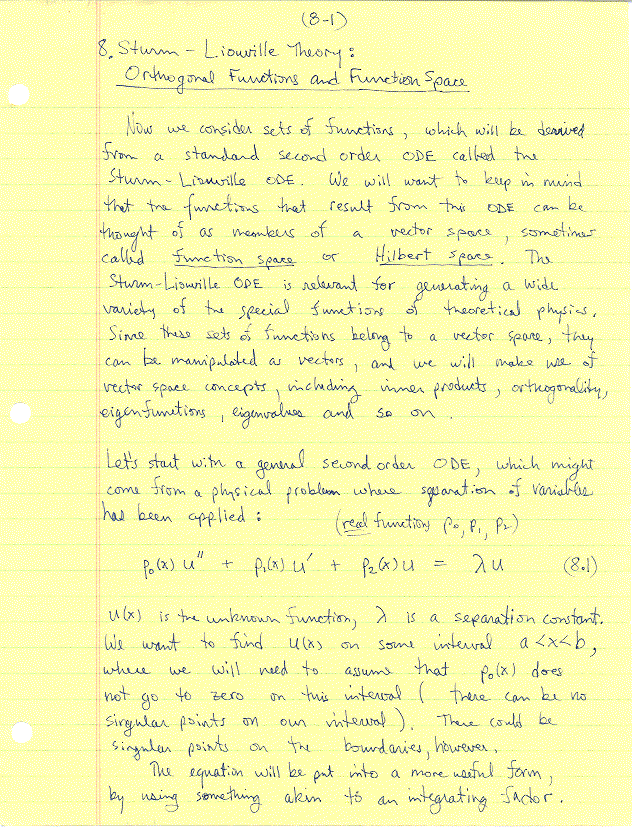 (8-1)
8. Sturm - Liouville Theory:
Orthogonal Functions and Function Space
Now we consider sets of functions, which will be derived
from a standard second order ODE called the
Sturm-Liouville ODE. We will want to keep in mind
that the functions that result from this ODE can be
thought of as members of a vector space, sometimes
called function space or Hilbert space. The
Sturm-Liouville ODE is relevant for generating a wide
variety of the special functions of theoretical physics.
Since these sets of functions belong to a vector space, they
can be manipulated as vectors, and we will make use of
vector space concepts, including inner products, orthogonality,
eigenfunctions, eigenvalues and so on.
Let's start with a general second order ODE, which might
come from a physical problem where separation of variables
has been applied: (real functions p₀, p₁, p₂)
p₀(x) u'' + p₁(x) u' + p₂(x) u = λ u (8.1)
u(x) is the unknown function, λ is a separation constant.
We want to find u(x) on some interval a<x<b,
where we will need to assume that p₀(x) does
not go to zero on this interval (there can be no
singular points on our interval). There could be
singular points on the boundaries, however.
The equation will be put into a more useful form,
by using something akin to an integrating factor.